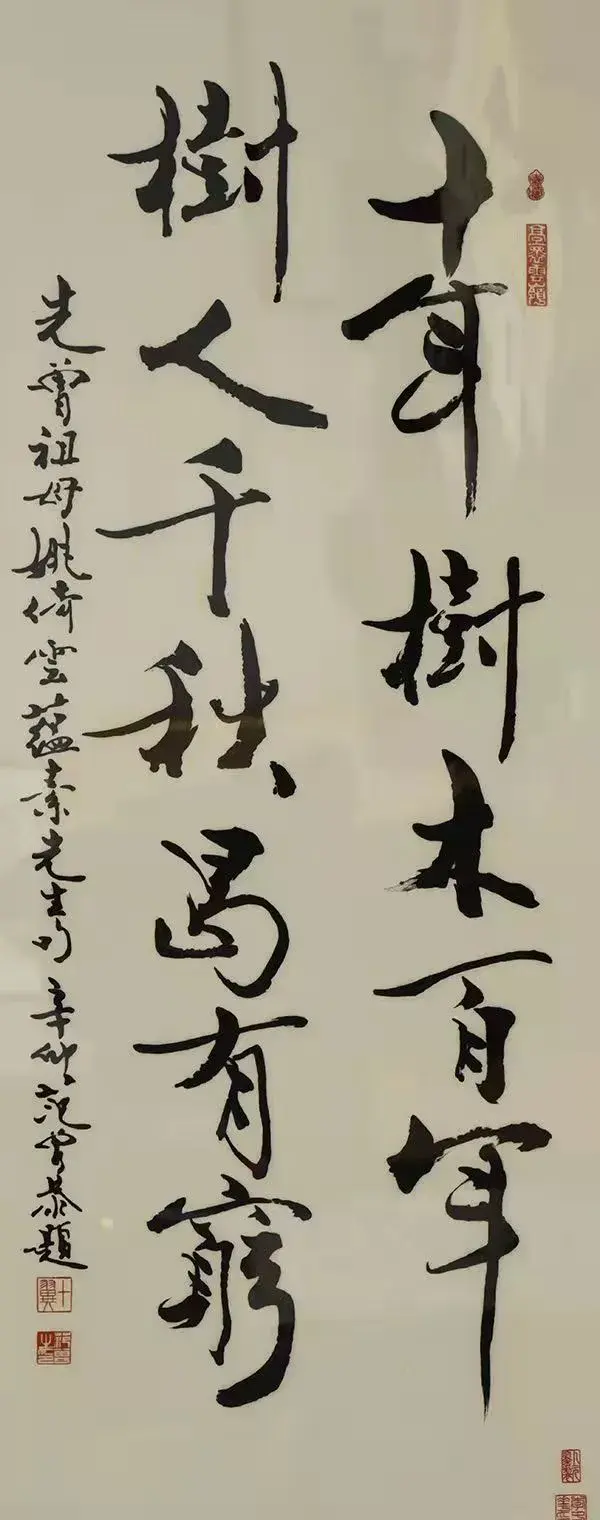 十年樹木百年
樹人千秋曷有窮
先曾祖母姚倚雲蘊素先生句 辛卯 范曾恭題
十翼